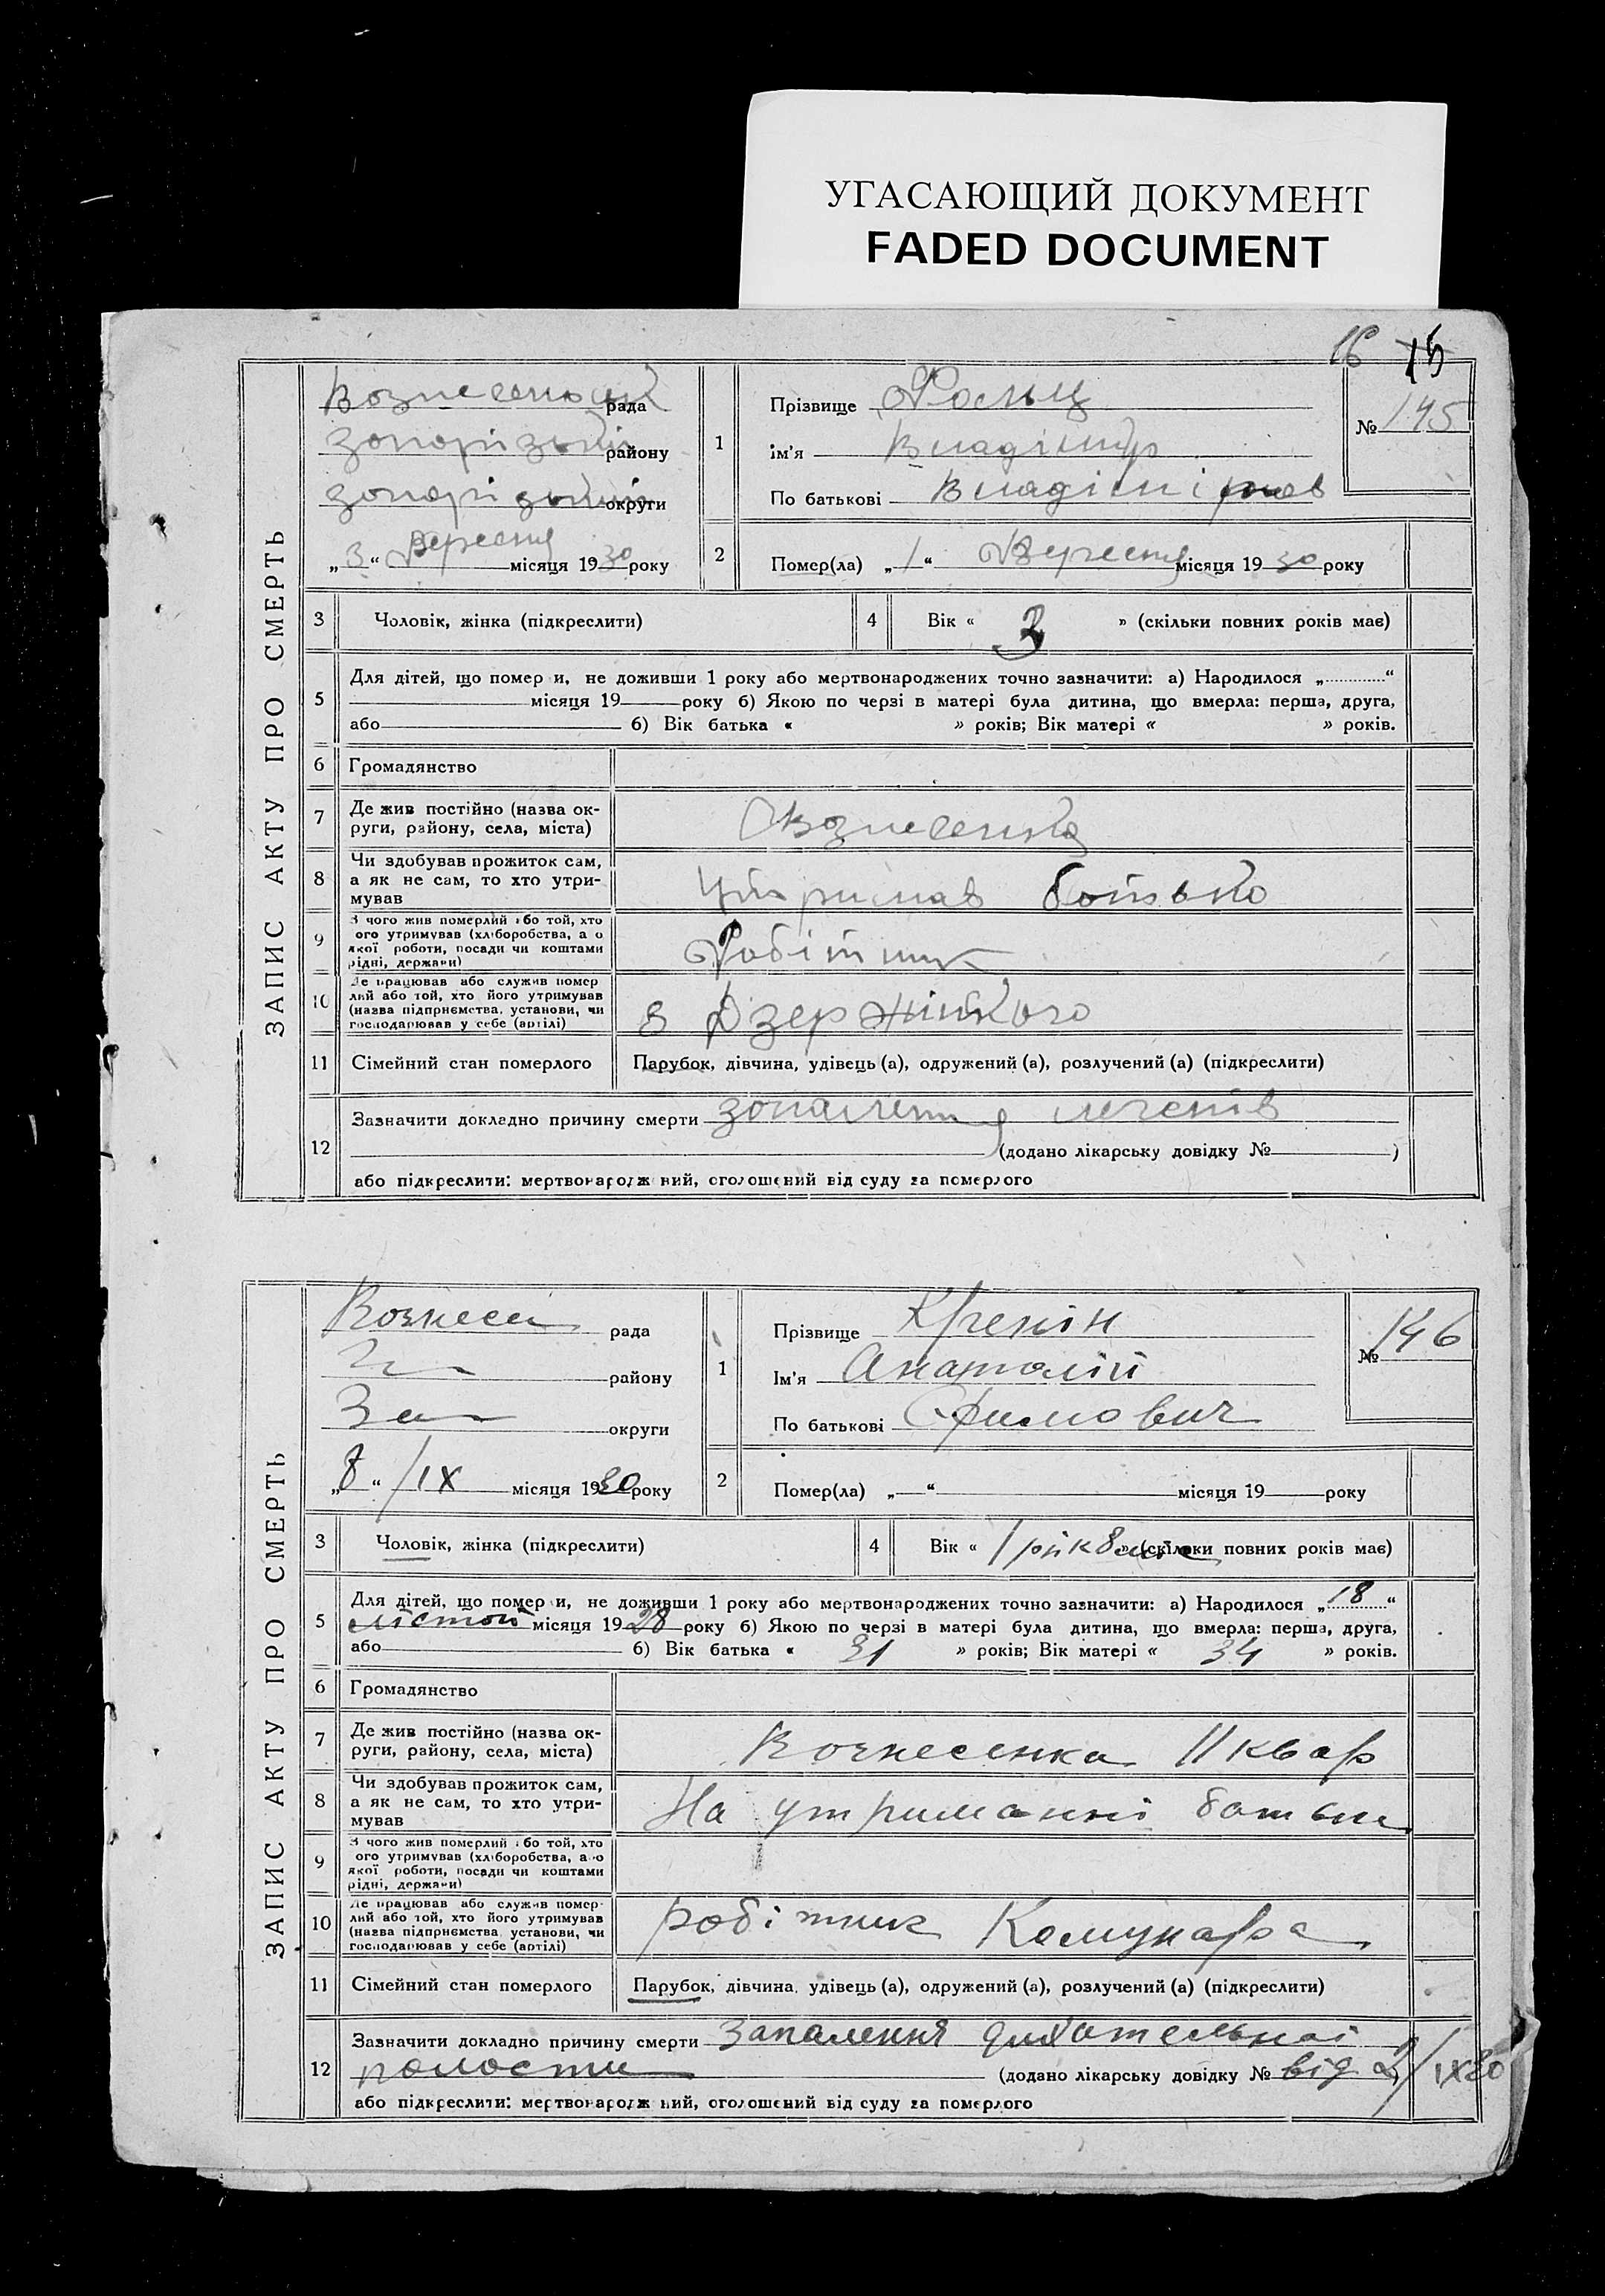 УГАСАЮЩИЙ ДОКУМЕНТ
FADED DOCUMENT
16 15
ЗАПИС АКТУ ПРО СМЕРТЬ
рада
району
округи
„3“ Вересня місяця 1930 року
1
Прізвище
ім'я Владімір
По батькові
№ 145
2
Помер(ла) „1“ Вересня місяця 1930 року
3 Чоловік, жінка (підкреслити)
4 Вік « 3 » (скільки повних років має)
5
Для дітей, що помер и, не доживши 1 року або мертвонароджених точно зазначити: а) Народилося „ “
місяця 19 року б) Якою по черзі в матері була дитина, що вмерла: перша, друга,
або б) Вік батька « » років; Вік матері « » років.
6 Громадянство
7
Де жив постійно (назва ок-
руги, району, села, міста)
Вознесенка
8
Чи здобував прожиток сам,
а як не сам, то хто утри-
мував
Утримав батько
9
З чого жив померлий або той, хто
ого утримував (хліборобства, а о
якої роботи, посади чи коштами
рідні, держави)
Робітник
10
Де працював або служив помер
лий або той, хто його утримував
(назва підприємства, установи, чи
господарював у себе (артілі)
з Дзержінкого
11 Сімейний стан померлого
Парубок, дівчина, удівець (а), одружений (а), розлучений (а) (підкреслити)
12
Зазначити докладно причину смерти запалення легенів
(додано лікарську довідку № )
або підкреслити: мертвонародж ний, оголошений від суду за померлого
ЗАПИС АКТУ ПРО СМЕРТЬ
Вознесен рада
району
Зап округи
„8“ /IX місяця 1930 року
1
Прізвище Кренін
Ім'я Анатолій
По батькові Єфимович
№ 146
2
Помер(ла) „ “ місяця 19 року
3 Чоловік, жінка (підкреслити)
4 Вік « 1 рік 8 міс » (скільки повних років має)
5
Для дітей, що помер и, не доживши 1 року або мертвонароджених точно зазначити: а) Народилося „18“
місяця 1928 року б) Якою по черзі в матері була дитина, що вмерла: перша, друга,
або б) Вік батька « 31 » років; Вік матері « 34 » років.
6 Громадянство
7
Де жив постійно (назва ок-
руги, району, села, міста)
Вознесенка II квар
8
Чи здобував прожиток сам,
а як не сам, то хто утри-
мував
На утриманні батьки
9
З чого жив померлий або той, хто
ого утримував (хліборобства, а о
якої роботи, посади чи коштами
рідні, держави)
10
Де працював або служив помер
лий або той, хто його утримував
(назва підприємства, установи, чи
господарював у себе (артілі)
робітник Комунара
11 Сімейний стан померлого
Парубок, дівчина, удівець (а), одружений (а), розлучений (а) (підкреслити)
12
Зазначити докладно причину смерти Запалення дихательної
полости (додано лікарську довідку № від 2/IX30
або підкреслити: мертвонародж ний, оголошений від суду за померлого